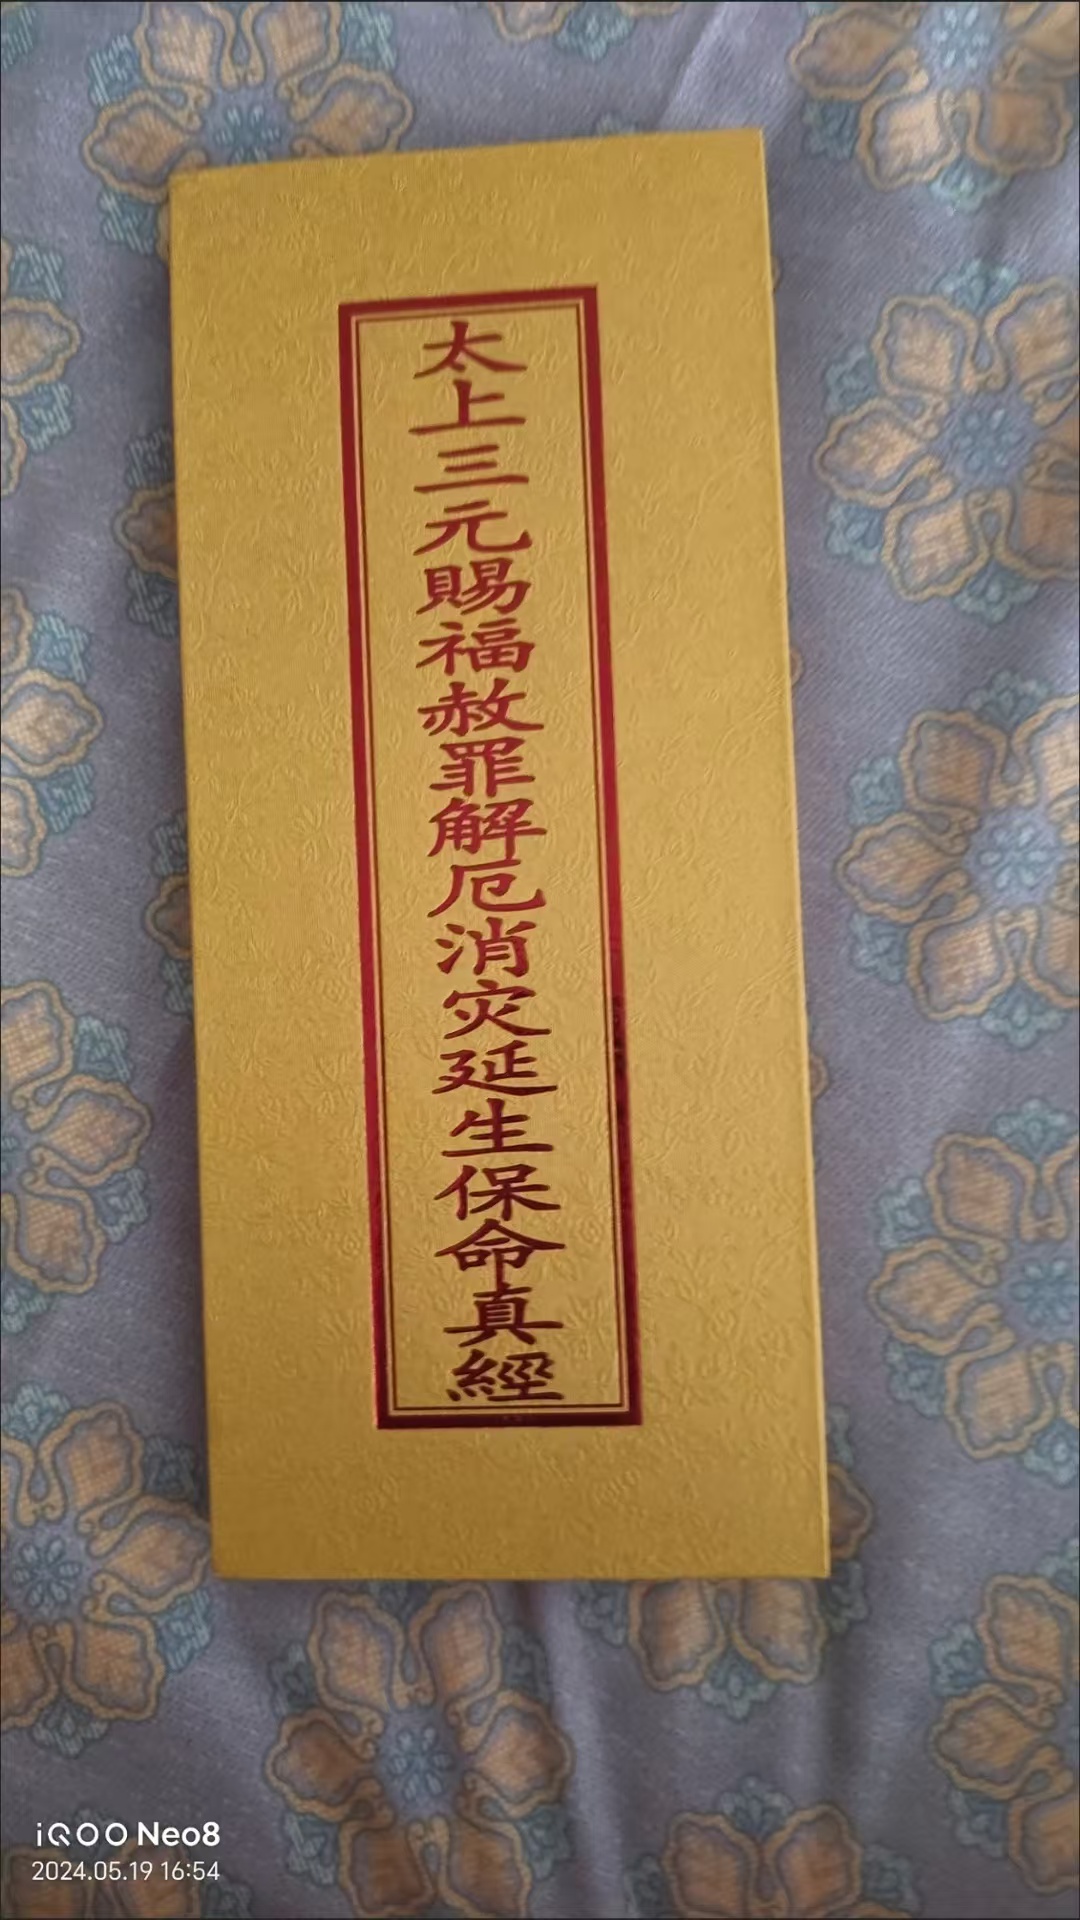 太上三元賜福赦罪解厄消灾延生保命真經
iQOO Neo8
2024.05.19 16:54